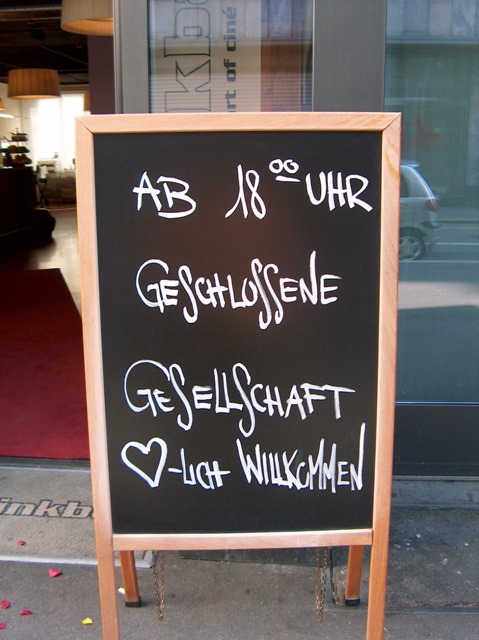 art of ciné
AB 18⁰⁰ UHR
GESCHLOSSENE
GESELLSCHAFT
♡-LICH WILLKOMMEN